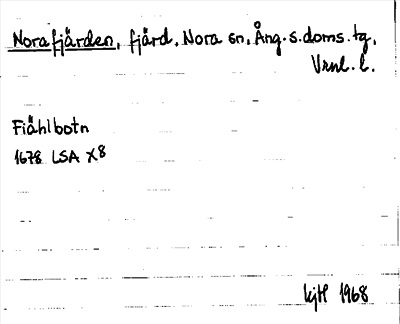 Norafjärden, fjärd, Nora sn, Ång. s. doms. tg,
Vrnl. l.
Fiåhlbotn
1678 LSA X8
kjH 1968